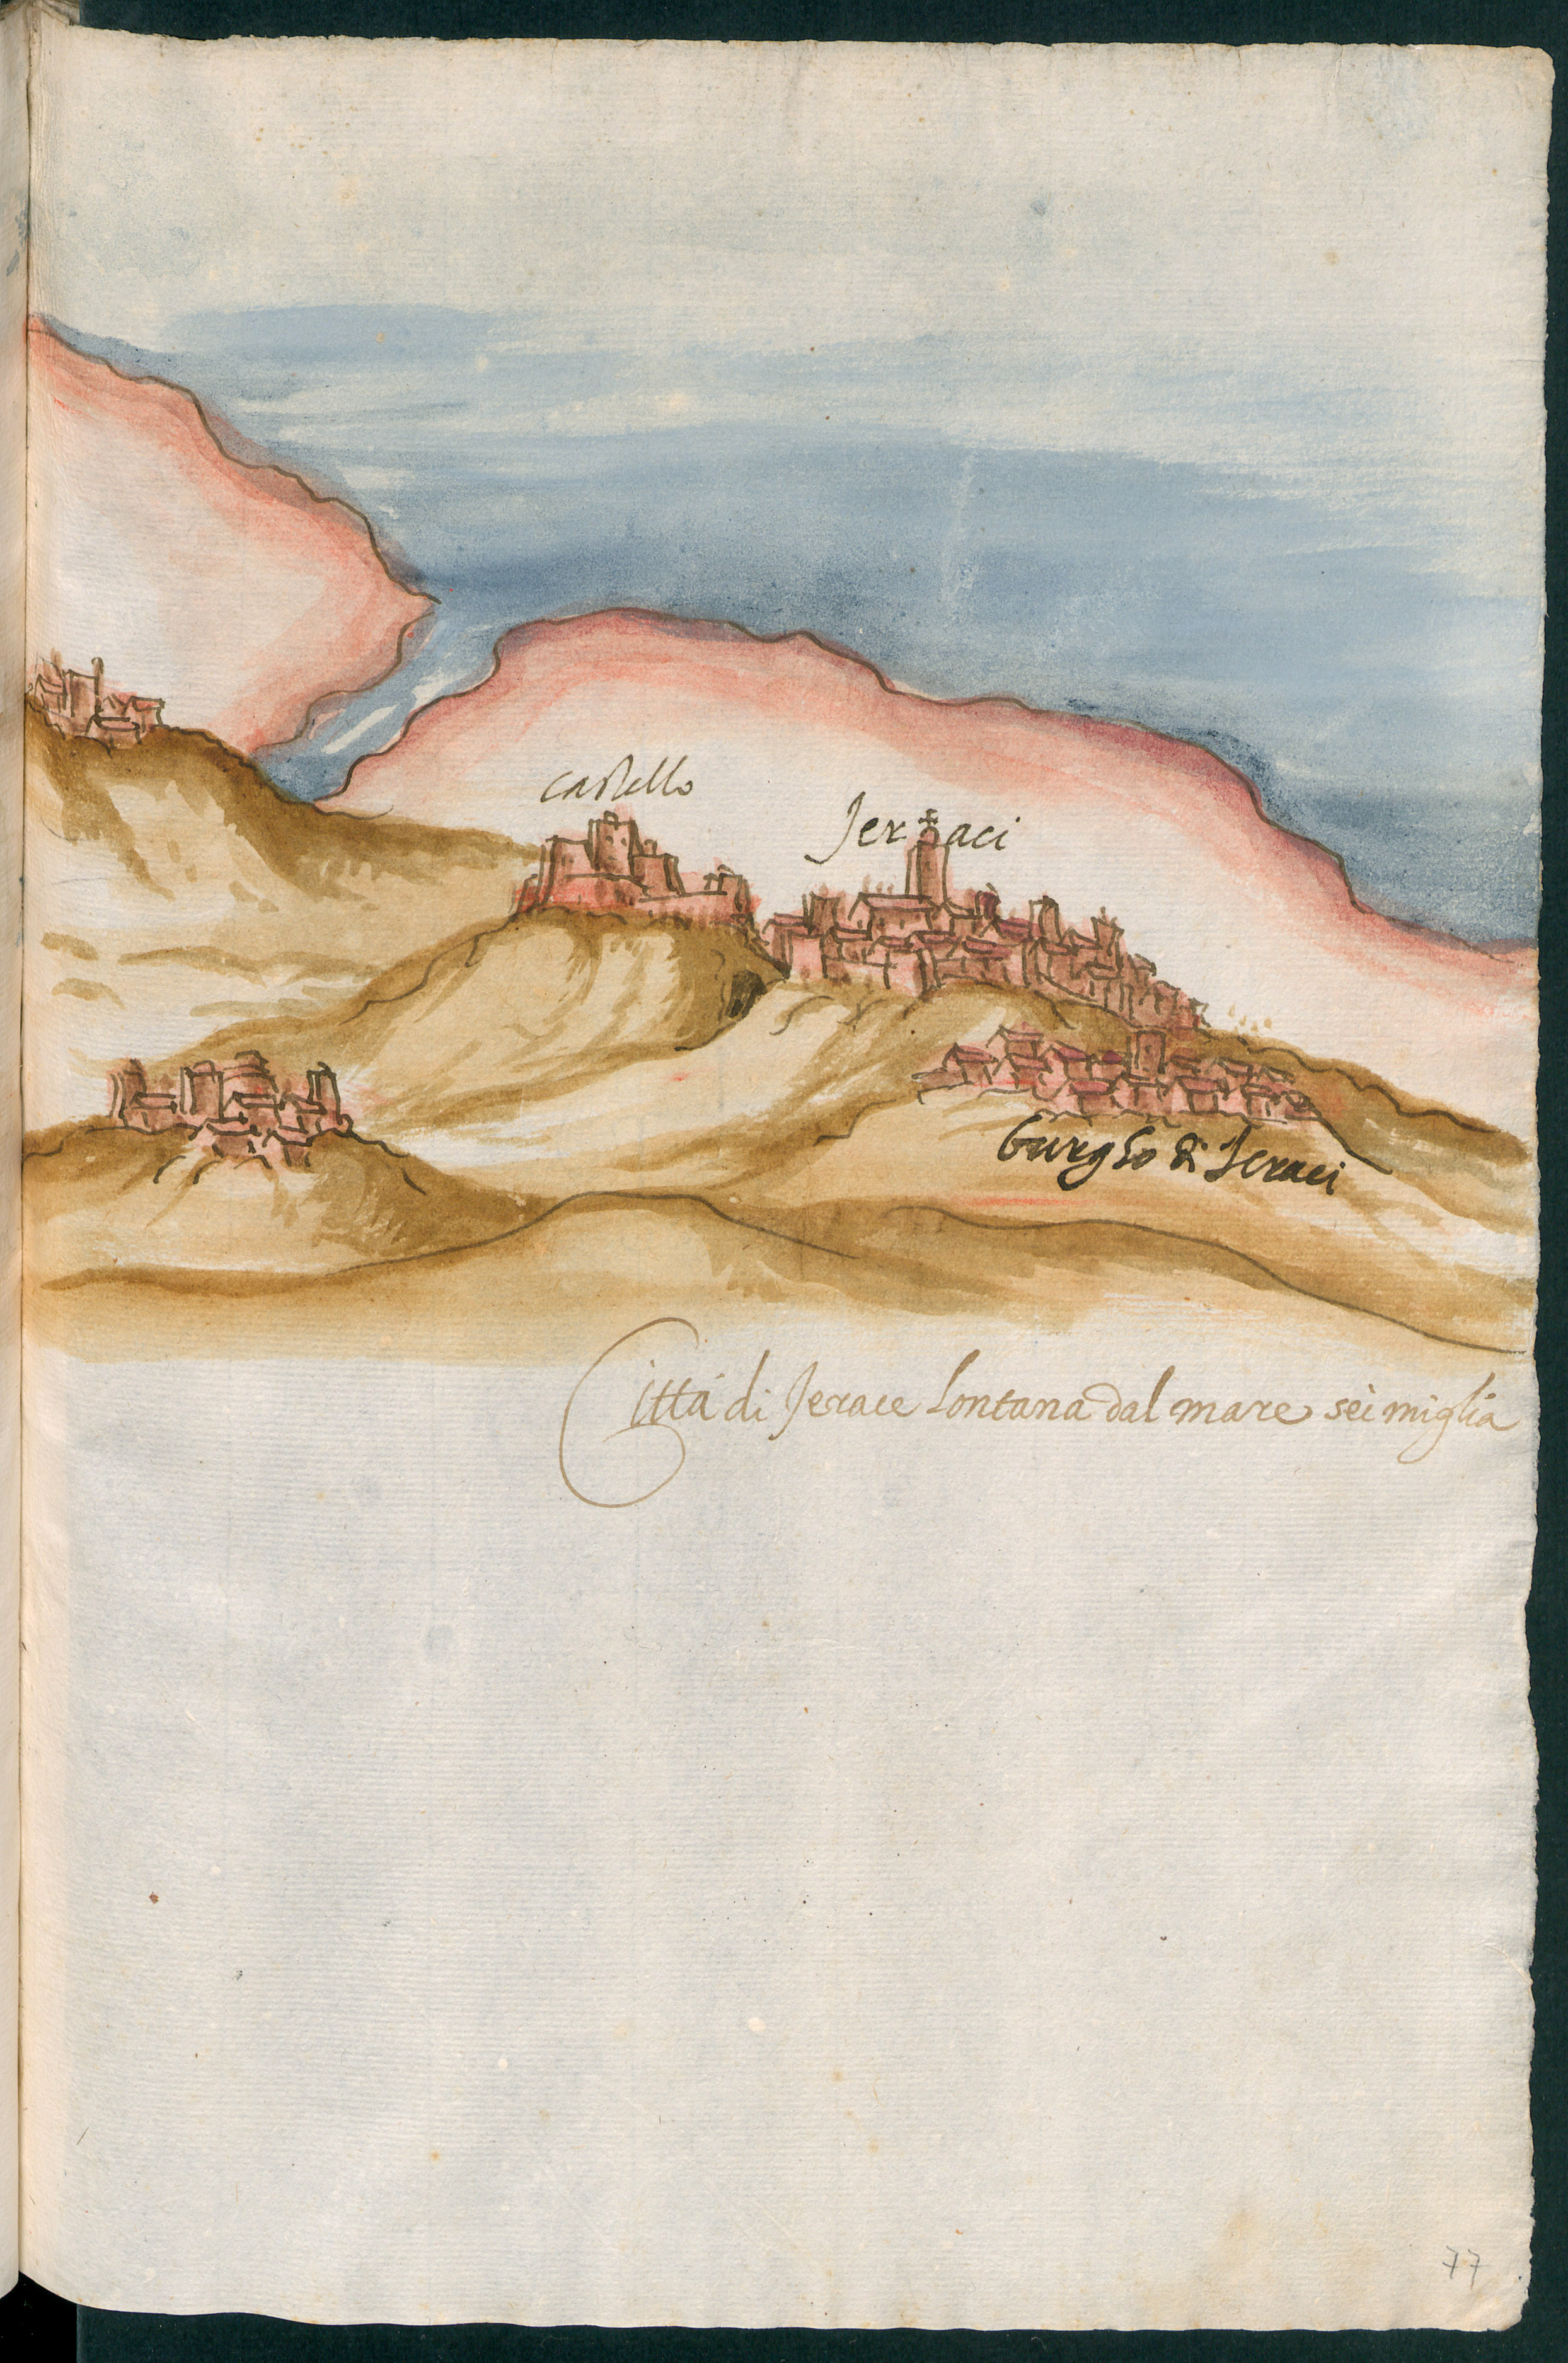 castello
Jeraci
burgho di Jeraci
Città di Jerace lontana dal mare sei miglia
77